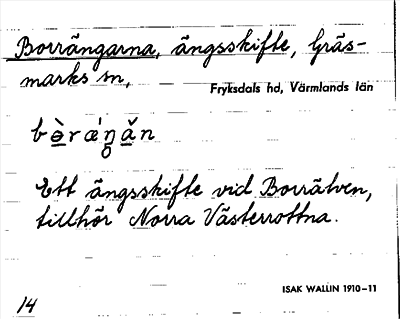 Borrängarna, ängsskifte, Gräs-
marks sn,
Fryksdals hd, Värmlands län
Ett ängsskifte vid Borrälven,
tillhör Norra Västerrottna.
ISAK WALLIN 1910–11
14